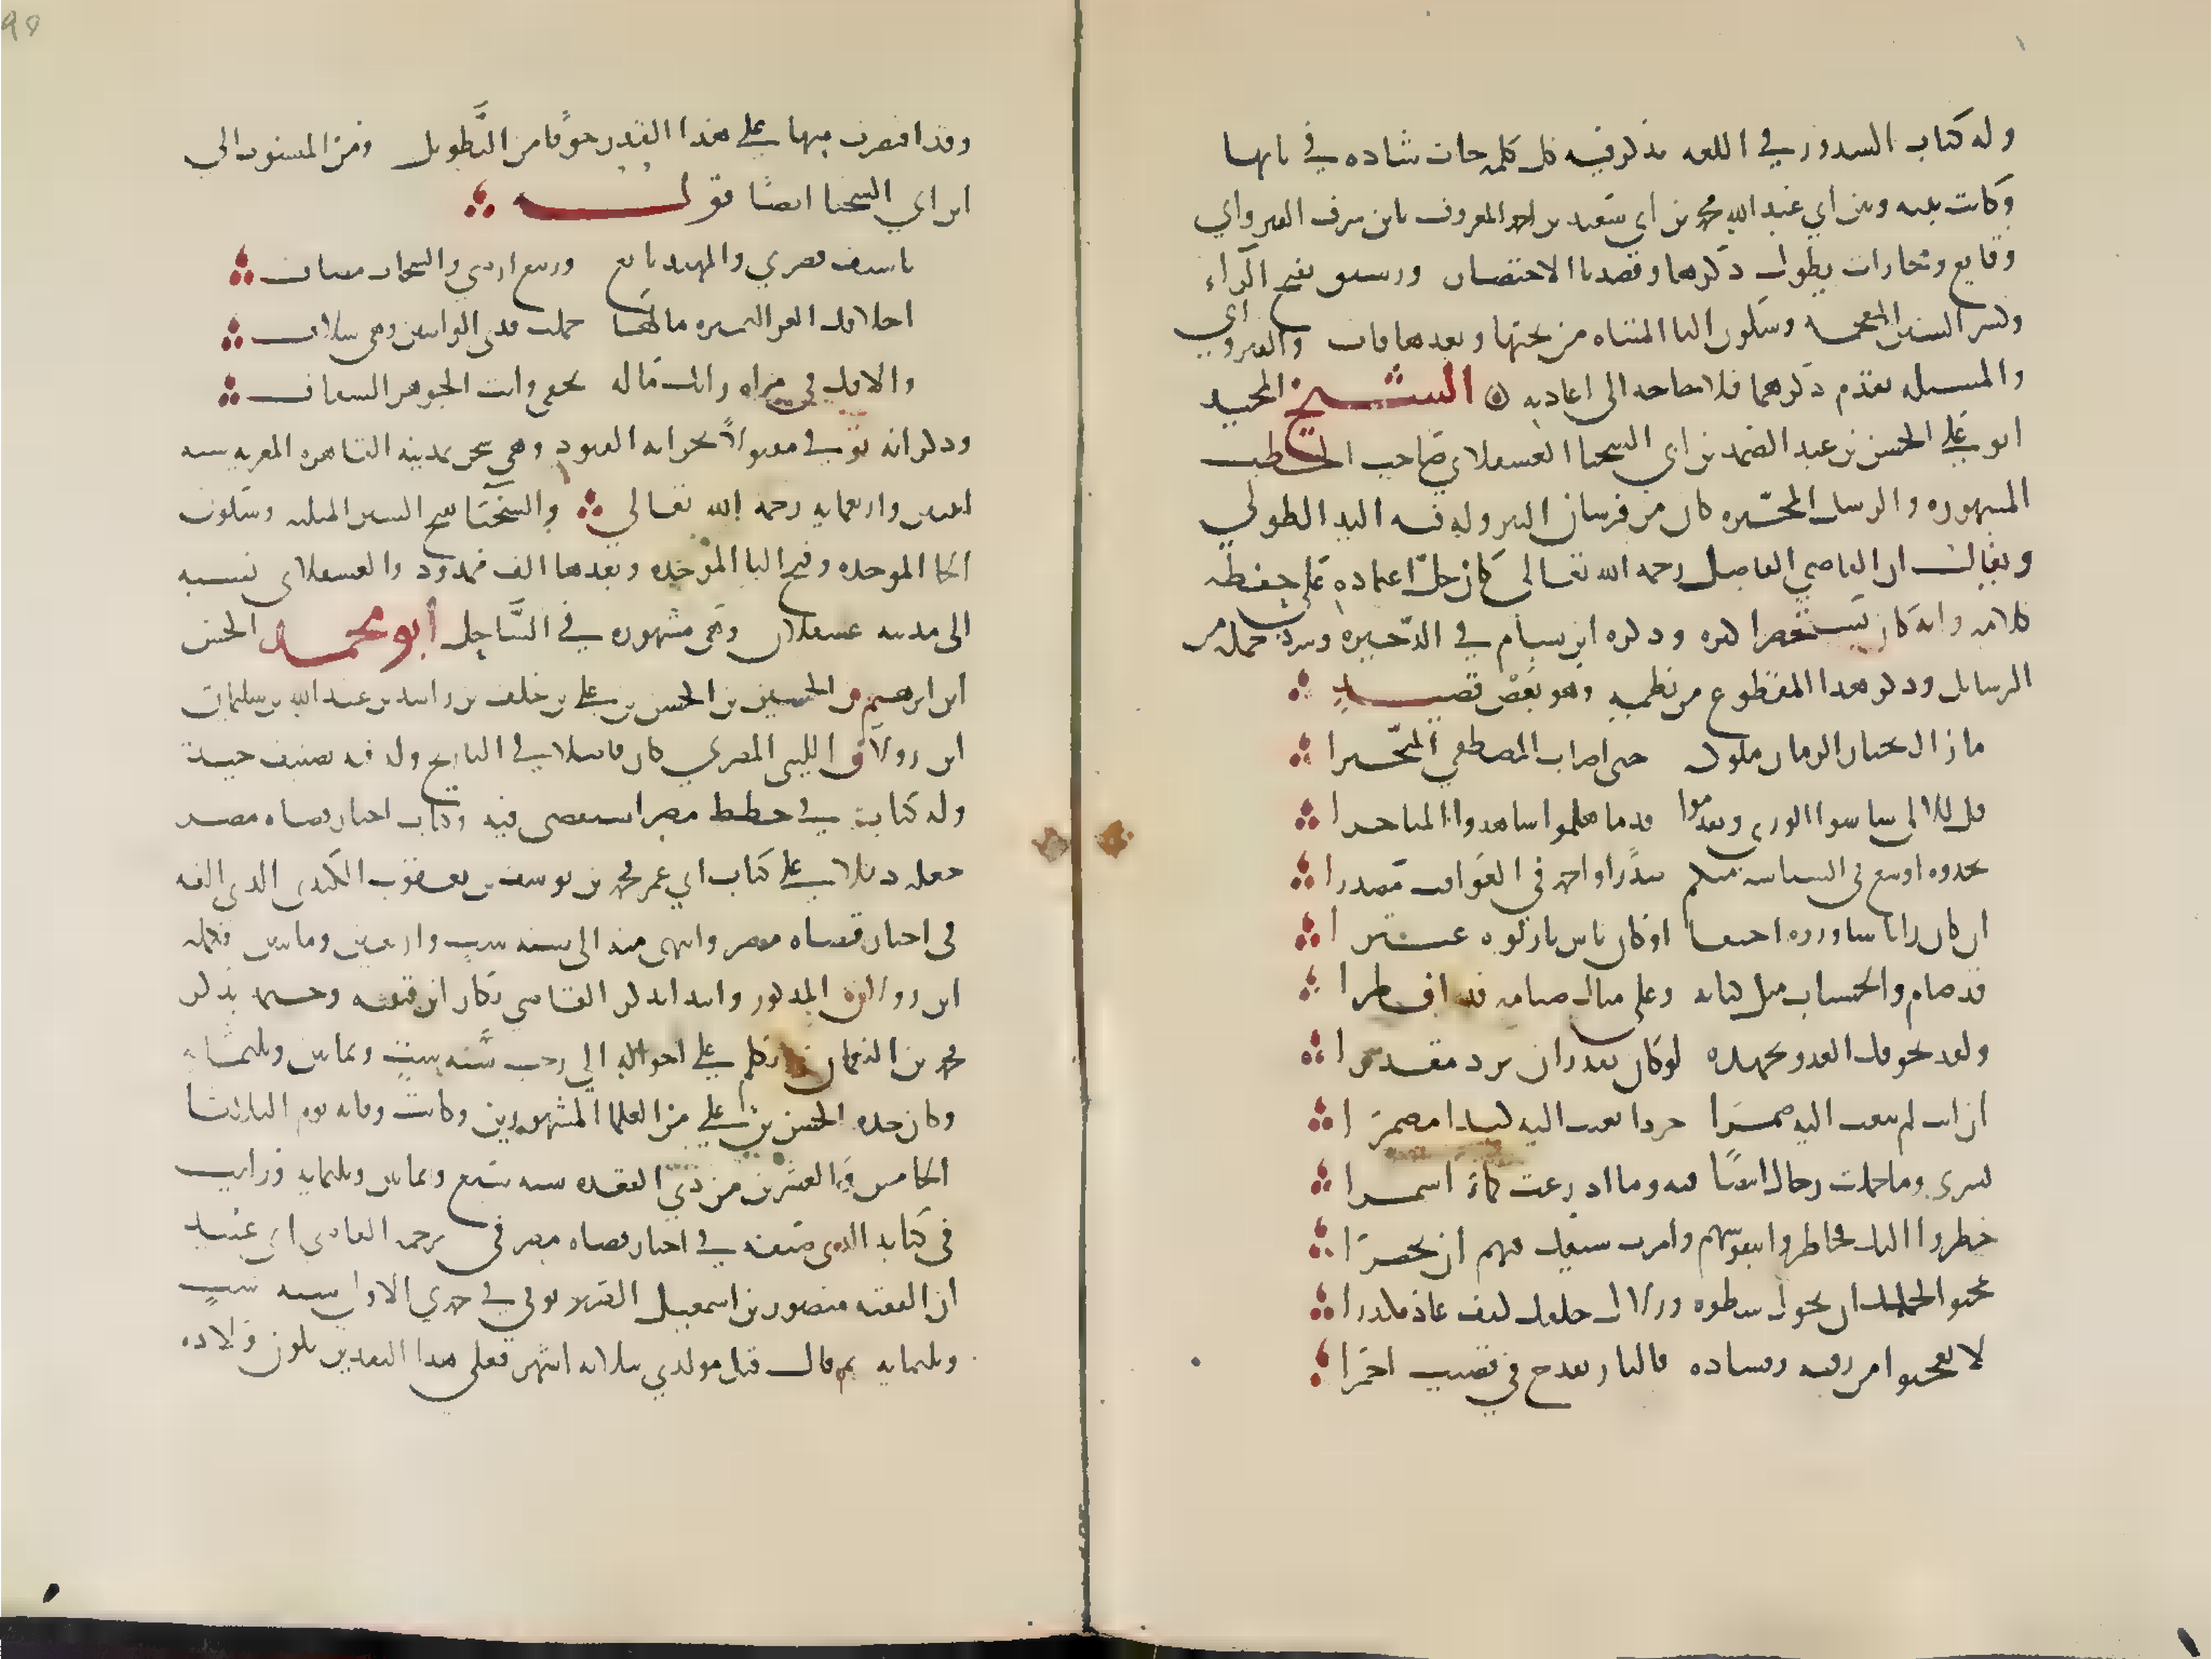 وله كتاب الشذوذ في اللغه يذكر فيه كل كلمه جات شاذه في بابها
وكانت بينه وبين ابي عبد الله محمد بن ابي سعيد بن احمد المعروف بابن شرف القيرواني
وقايع ومحارات يطول ذكرها وقصدنا الاختصار ورشيق بفتح الراء
وكسر الشين المعجمه وسكون اليا المثناه من تحتها وبعدها قاف والقيرواني
والمسيله تقدم ذكرهما فلا حاجه الى اعادته ه الشيخ المجيد
ابو علي الحسن بن عبد الصمد بن ابي الشخبا العسقلاني صاحب الخطب
المشهوره والرسايل المحبره كان من فرسان النثر وله فيه اليد الطولى
ويقال ان القاضي الفاضل رحمه الله تعالى كان جل اعتماده على حفظ
كلامه وانه كان يستحضر اكثره وذكره ابن بسام في الذخيره وسرد جمله من
الرسايل وذكر هذا المقطوع من نظمه وهو بعض قصيد
ما زال يختار الزمان ملوكه حتى اصاب المصطفى المتخيرا
قل للالى ساسوا الورى وتقدموا قدما هلموا شاهدوا المتاخرا
تجدوه اوسع في السياسه منكم صدرا واحمد في العواقب مصدرا
ان كان راي شاوروه احنفا او كان باس بارزوه عنترا
قد صام والحسنات ملء كتابه وعلى مثال صيامه قد افطرا
ولقد تخوفك العدو بجهده لو كان يقدر ان يرد مقدرا
ان انت لم تبعث اليه ضمرا جردا بعثت اليه كيدا مضمرا
يسري وما حملت رجال ابيضا فيه وما ادرعت كماة اسمرا
خطروا اليك فخاطروا بنفوسهم وامرت سيفك فيهم ان يخطرا
عجبوا لحلمك ان تحول سطوه وزلال خلقك كيف عاد مكدرا
لا تعجبوا من رقه وقساده فالنار تقدح في قضيب اخضرا
وقد اقتصرت منها على هذا القدر خوفا من التطويل ومن المنسوب الى
ابن ابي الشخبا ايضا قوله
ياسيف نصري والمهند يانع وربيع ارضي والسحاب مصاف
اخلاقك الغر النميره مالها حملت قذى الواشين وهي سلاف
والافك في مراه رايك ماله يخفى وانت الجوهر الشفاف
وذكر انه توفي مقتولا بخزانه البنود وهي سجن بمدينه القاهره المعزيه سنه
اثنين وثمانين واربعمايه رحمه الله تعالى والشخبا بفتح الشين المثلثه وسكون
الخا الموحده وفتح البا الموحده وبعدها الف ممدود والعسقلاني نسبه
الى مدينه عسقلان وهي مشهوره في الساحل أبو محمد الحسن
ابن ابرهيم بن الحسين بن الحسن بن علي بن خلف بن راشد بن عبد الله بن سليمان
ابن زولاق الليثي المصري كان فاضلا في التاريخ وله فيه تصنيف جيد
وله كتاب في خطط مصر استقصى فيه وكتاب اخبار قضاه مصر
جعله ذيلا على كتاب ابي عمر محمد بن يوسف بن يعقوب الكندي الذي الفه
في اخبار قضاه مصر وانتهى فيه الى سنه ست واربعين ومايتين فكمله
ابن زولاق المذكور وابتدا بذكر القاضي بكار بن قتيبه وختمه بذكر
محمد بن النعمان وتكلم على احواله الى رجب سنه ست وثمانين وثلثمايه
وكان جده الحسن بن علي من العلما المشهورين وكانت وفاته يوم الثلاثا
الخامس والعشرين من ذي القعده سنه سبع وثمانين وثلثمايه ورايت
في كتابه الذي صنفه في اخبار قضاه مصر في ترجمه القاضي ابي عبيد
ان الفقيه منصور بن اسمعيل الضرير توفي في جمدي الاولى سنه ست
وثلثمايه ثم قال قبل مولدي بثلاثه اشهر فعلى هذا التقدير تكون ولاده